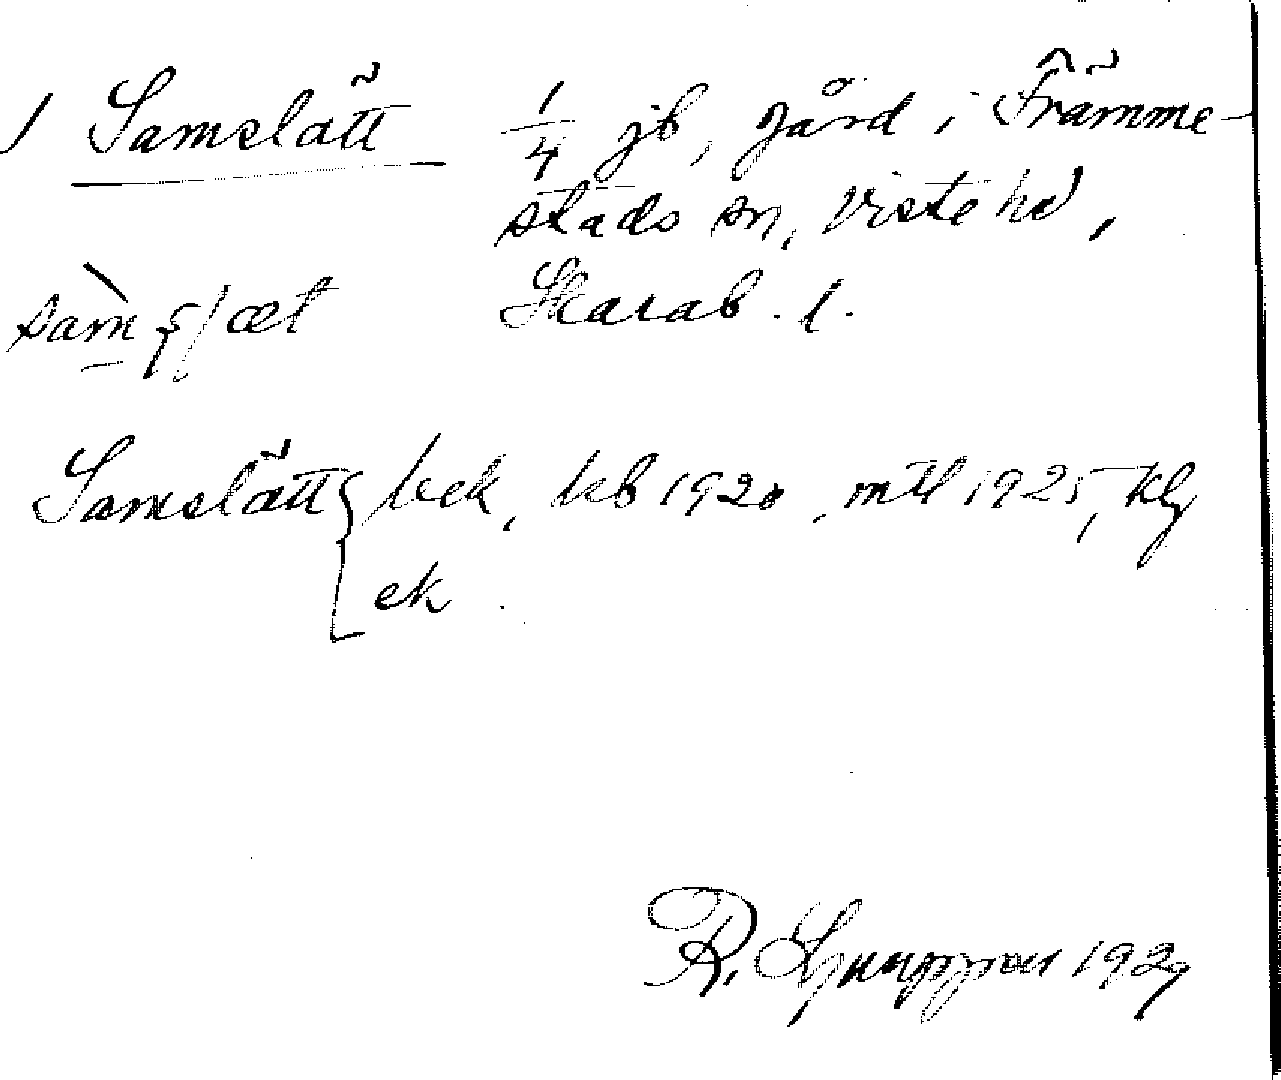 1 Samslätt 1/4 jb, gård i Främme-
stads sn, Viste hd,
Skarab. l.
Samslätt { bek, kb 1920, mtl 1925, klg
ek
R. Ljunggren 1929